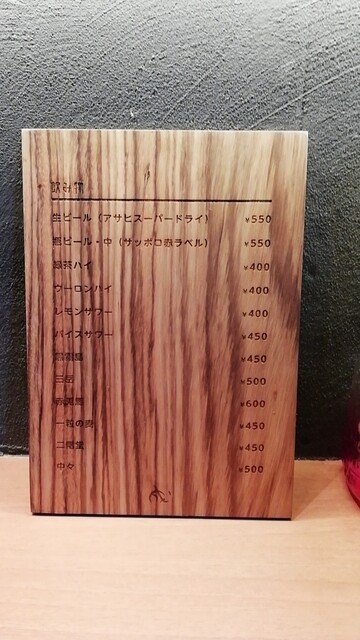 飲み物
生ビール（アサヒスーパードライ） ¥550
瓶ビール・中（サッポロ赤ラベル） ¥550
緑茶ハイ ¥400
ウーロンハイ ¥400
レモンサワー ¥400
バイスサワー ¥450
¥450
三岳 ¥500
¥600
一粒の麦 ¥450
二階堂 ¥450
中々 ¥500